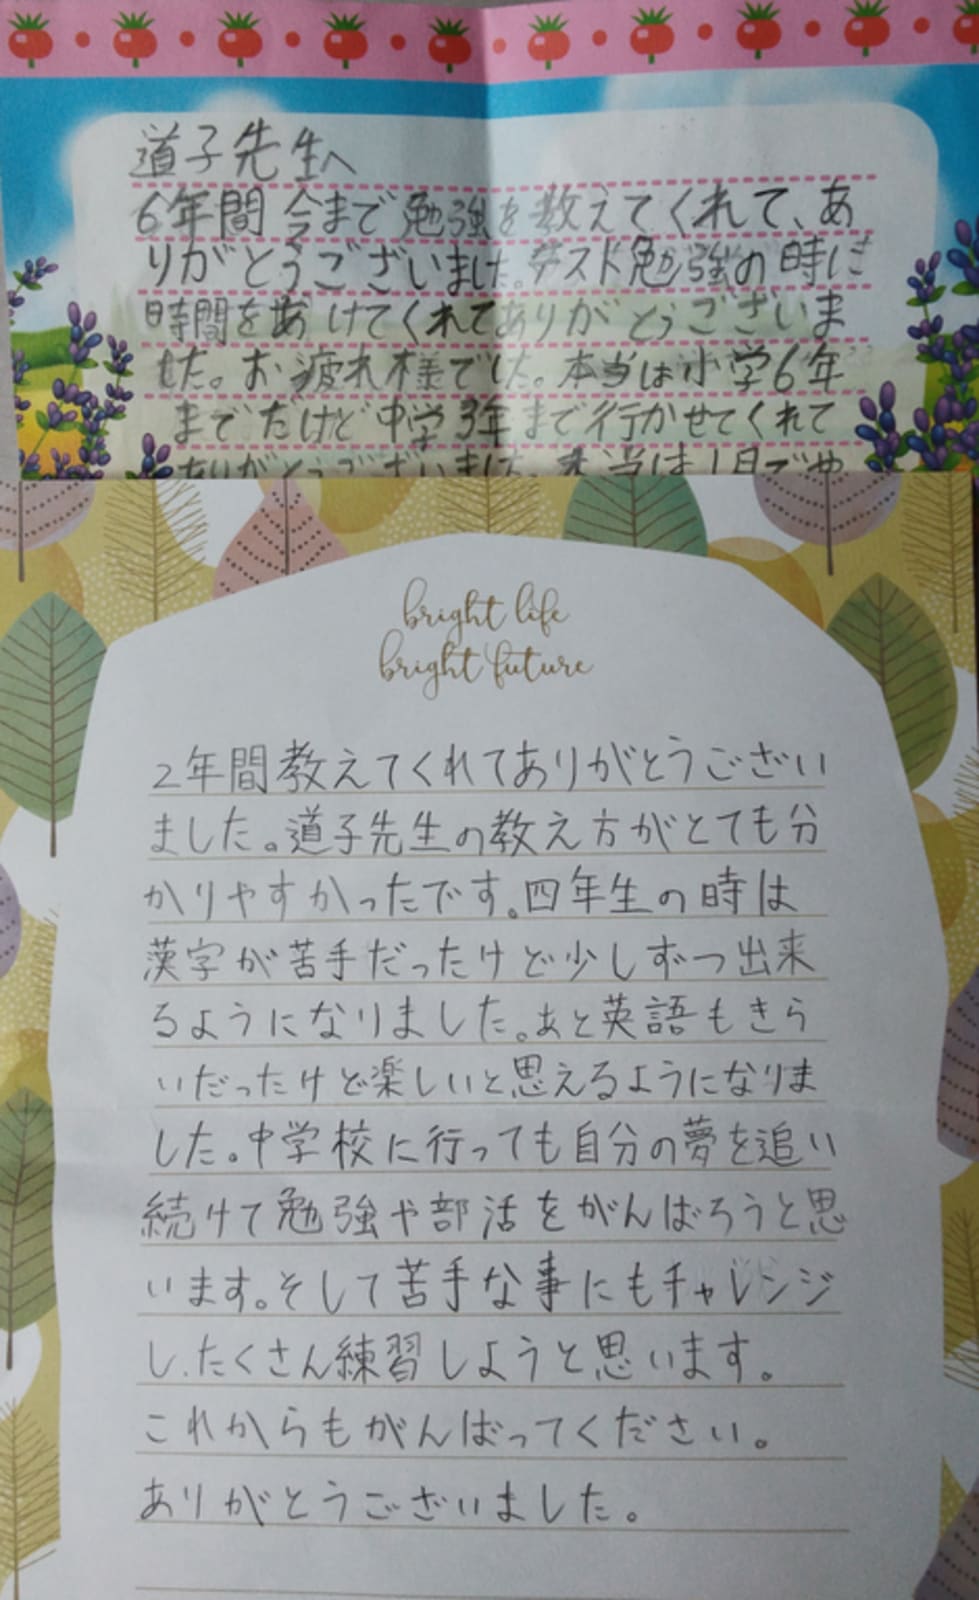 道子先生へ
6年間今まで勉強を教えてくれて、あ
りがとうございました。テスト勉強の時に
時間をあけてくれてありがとうございま
した。お疲れ様でした。本当は小学6年
までだけど中学3年まで行かせてくれて
ありがとうございました。本当は1日でや
bright life
bright future
2年間教えてくれてありがとうござい
ました。道子先生の教え方がとても分
かりやすかったです。四年生の時は
漢字が苦手だったけど少しずつ出来
るようになりました。あと英語もきら
いだったけど楽しいと思えるようになりま
した。中学校に行っても自分の夢を追い
続けて勉強や部活をがんばろうと思
います。そして苦手な事にもチャレンジ
し、たくさん練習しようと思います。
これからもがんばってください。
ありがとうございました。